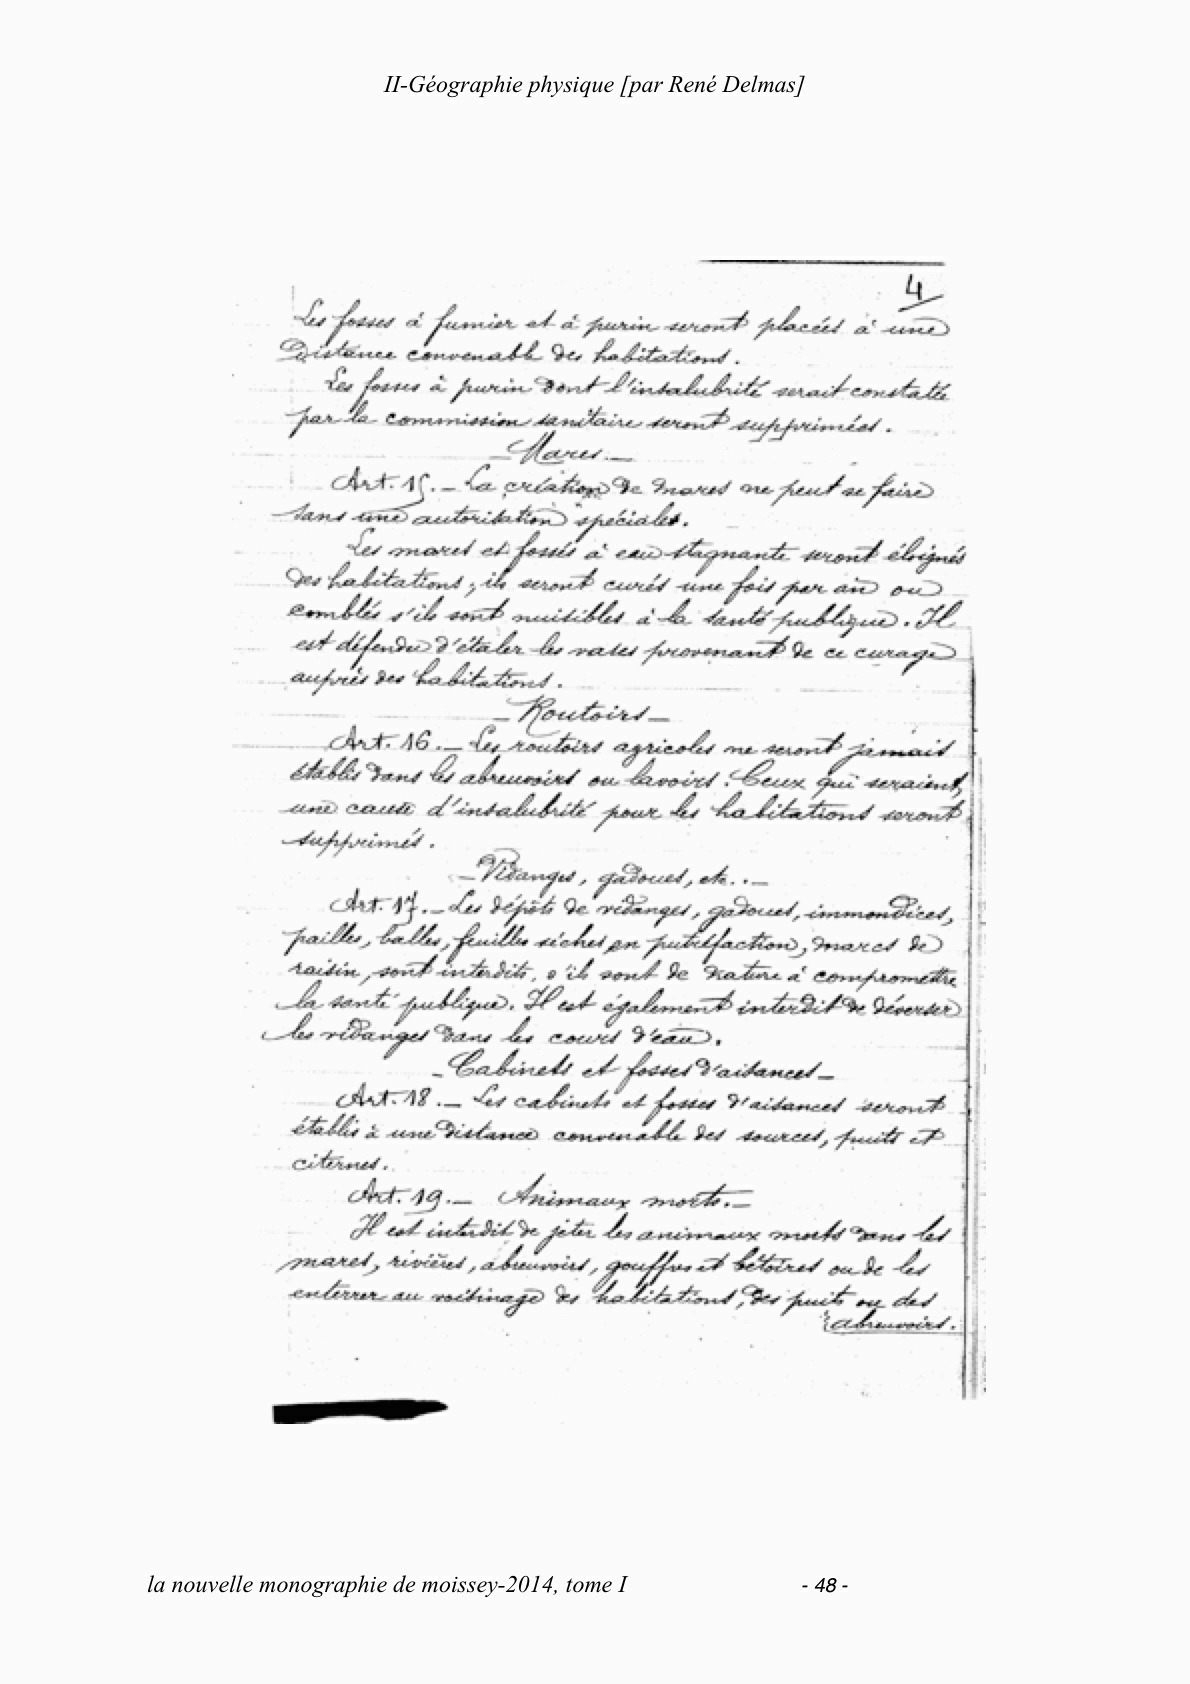 II-Géographie physique [par René Delmas]
4
Les fosses à fumier et à purin seront placées à une
Distance convenable des habitations.
Les fosses à purin dont l'insalubrité serait constatée
par la commission sanitaire seront supprimées.
— Mares. —
Art. 15. — La création de mares ne peut se faire
sans une autorisation spéciale.
Les mares et fossés à eau stagnante seront éloignés
des habitations ; ils seront curés une fois par an ou
comblés s'ils sont nuisibles à la santé publique. Il
est défendu d'étaler les vases provenant de ce curage
auprès des habitations.
— Routoirs —
Art. 16. — Les routoirs agricoles ne seront jamais
établis dans les abreuvoirs ou lavoirs. Ceux qui seraient
une cause d'insalubrité pour les habitations seront
supprimés.
— Vidanges, gadoues, etc.. —
Art. 17. — Les dépôts de vidanges, gadoues, immondices,
pailles, balles, feuilles sèches en putréfaction, marcs de
raisin, sont interdits, s'ils sont de nature à compromettre
la santé publique. Il est également interdit de déverser
les vidanges dans les cours d'eau.
— Cabinets et fosses d'aisances —
Art. 18. — Les cabinets et fosses d'aisances seront
établis à une distance convenable des sources, puits et
citernes.
Art. 19. — Animaux morts. —
Il est interdit de jeter les animaux morts dans les
mares, rivières, abreuvoirs, gouffres et bétoires ou de les
enterrer au voisinage des habitations, des puits ou des
abreuvoirs.
la nouvelle monographie de moissey-2014, tome I - 48 -